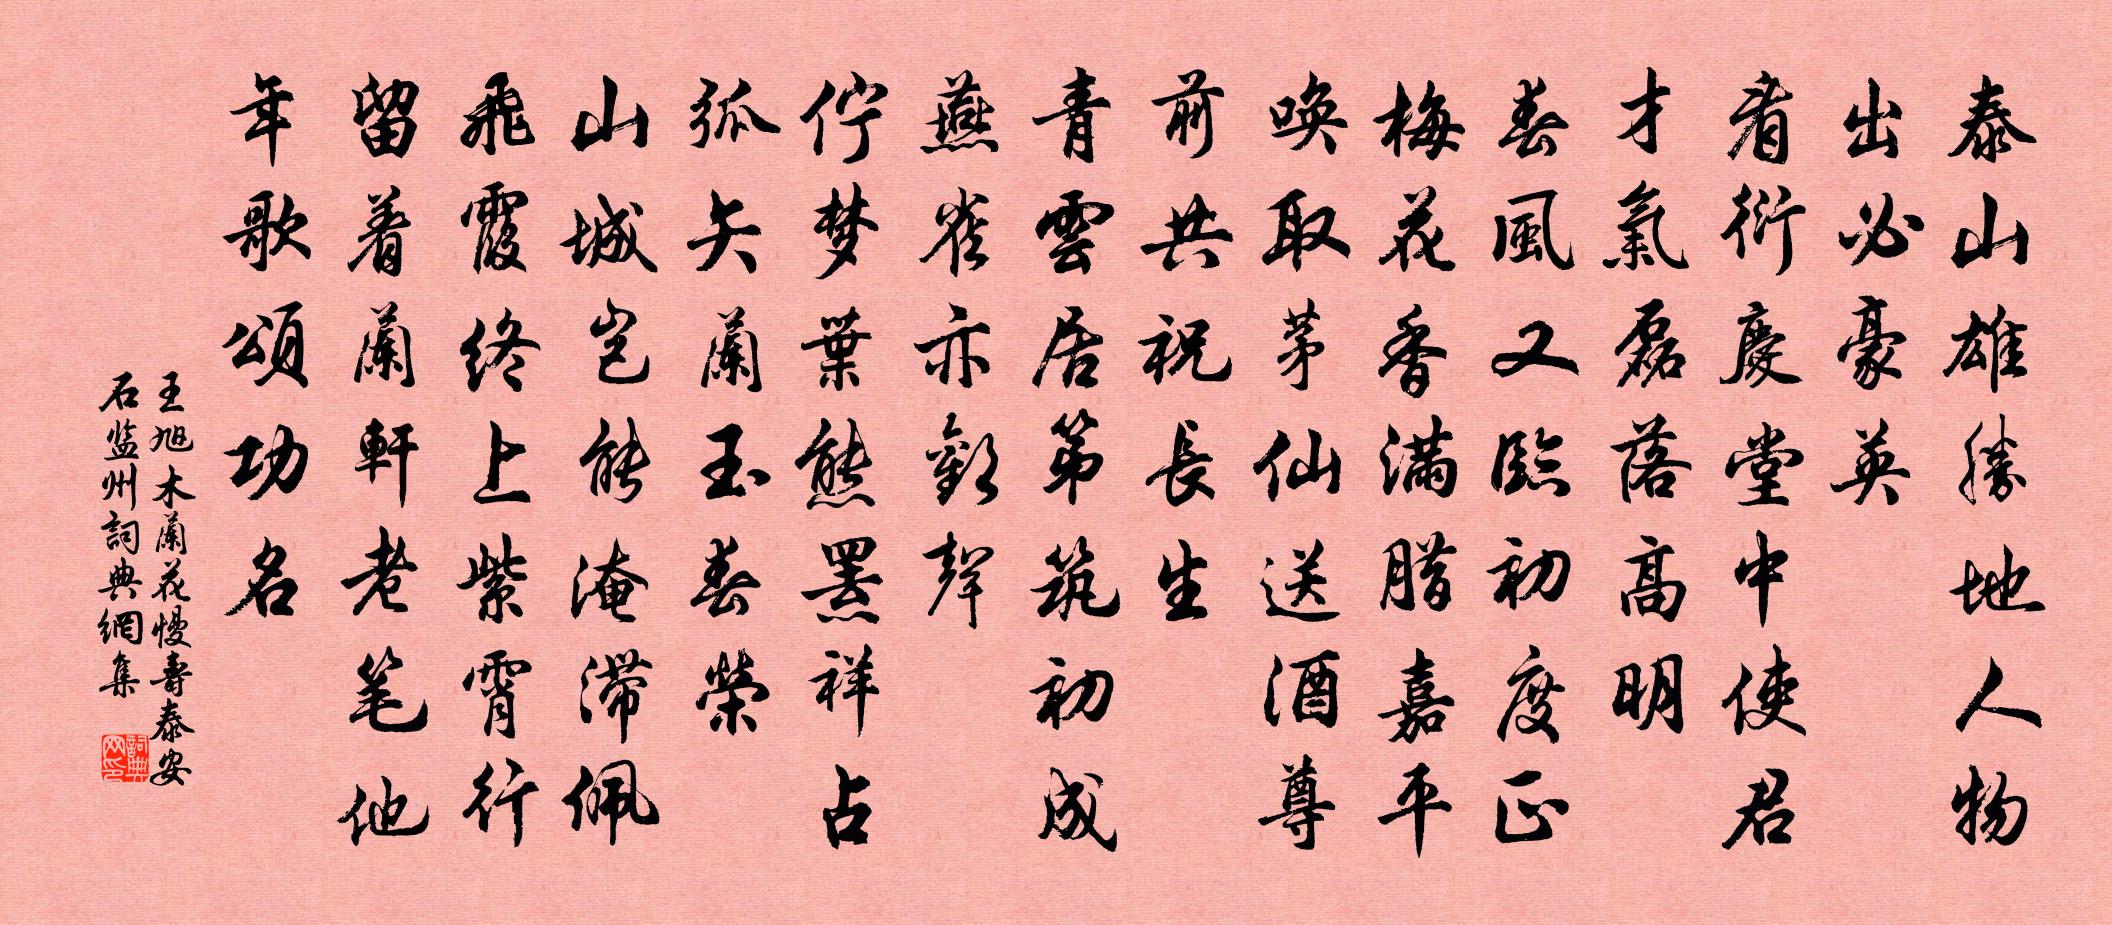 泰山雄勝地人物
出必豪英
看衍慶堂中使君
才氣磊落高明
春風又臨初度正
梅花香滿腊嘉平
喚取茅仙送酒尊
前共祝長生
青雲居第筑初成
燕雀亦歡聲
佇梦葉熊羆祥占
弧矢蘭玉春榮
山城豈能淹滯佩
飛霞終上紫霄行
留着蘭軒老笔他
年歌頌功名
王旭木蘭花慢壽泰安
石监州詞典網集
詞典网印